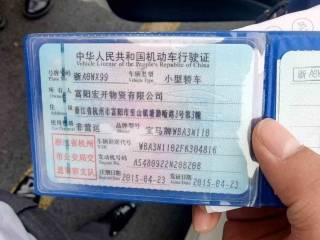 中华人民共和国机动车行驶证
Vehicle License of the People's Republic of China
号牌号码 浙A8WX99 车辆类型 小型轿车
Vehicle Type
所有人 富阳宏开物资有限公司
Owner
住址 浙江省杭州市富阳市
使用性质 非营运 品牌型号 宝马牌WBA3N110
浙江省杭州
市公安局交
通警察支队
车辆识别代号 WBA3N1102FK304816
发动机号码 A5480922N20B20B
注册日期 2015-04-23 发证日期 2015-04-23